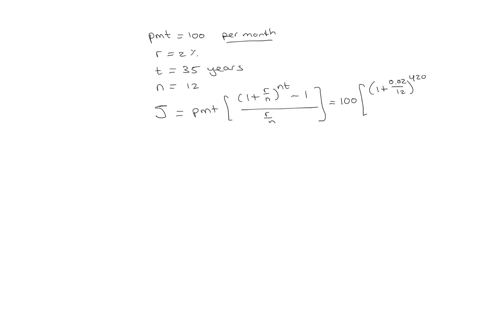 pmt = 100 per month
r = 2%
t = 35 years
n = 12
S = pmt [ ((1 + r/n)^nt - 1) / (r/n) ] = 100 [ (1 + 0.02/12)^420